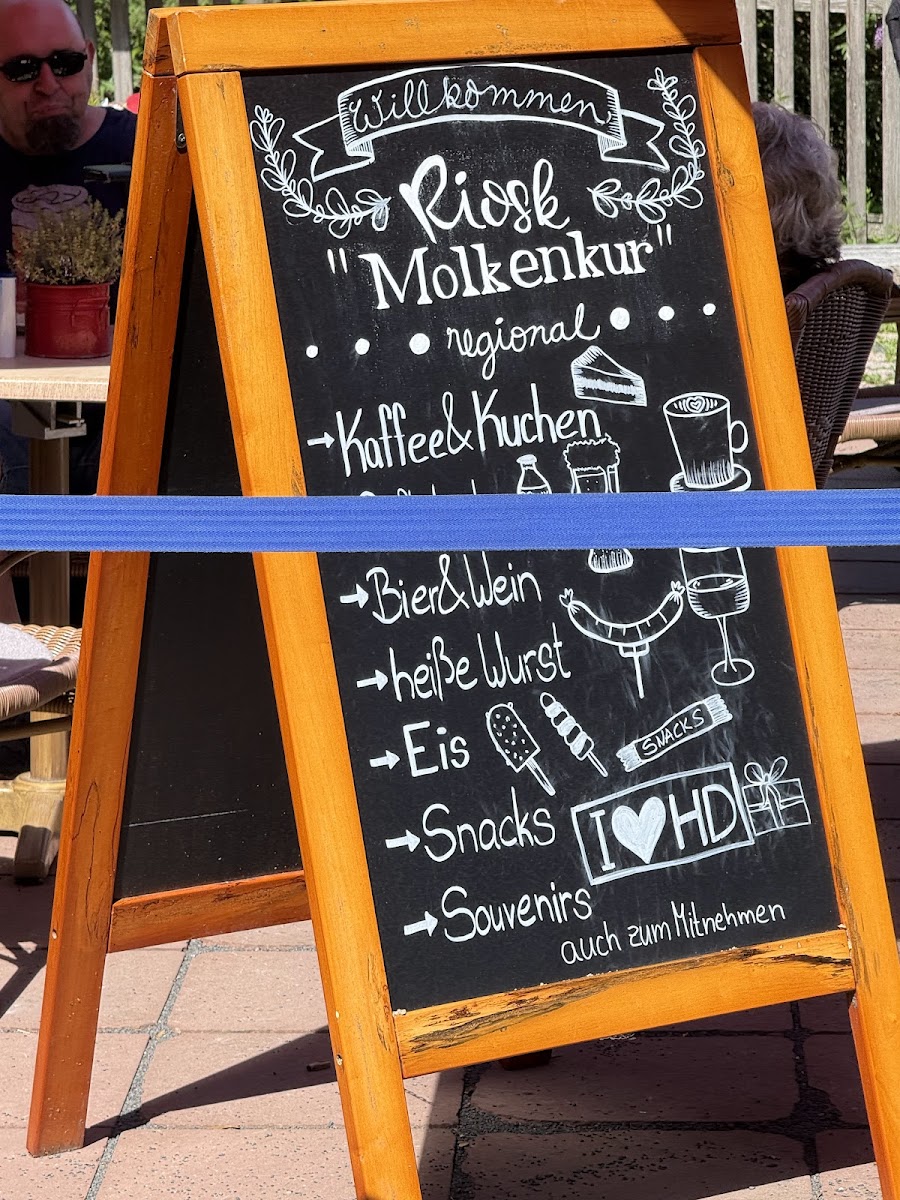 Willkommen
Kiosk
"Molkenkur"
regional
Kaffee&Kuchen
Bier&Wein
heiße Wurst
Eis
SNACKS
Snacks
I♥HD
Souvenirs
auch zum Mitnehmen